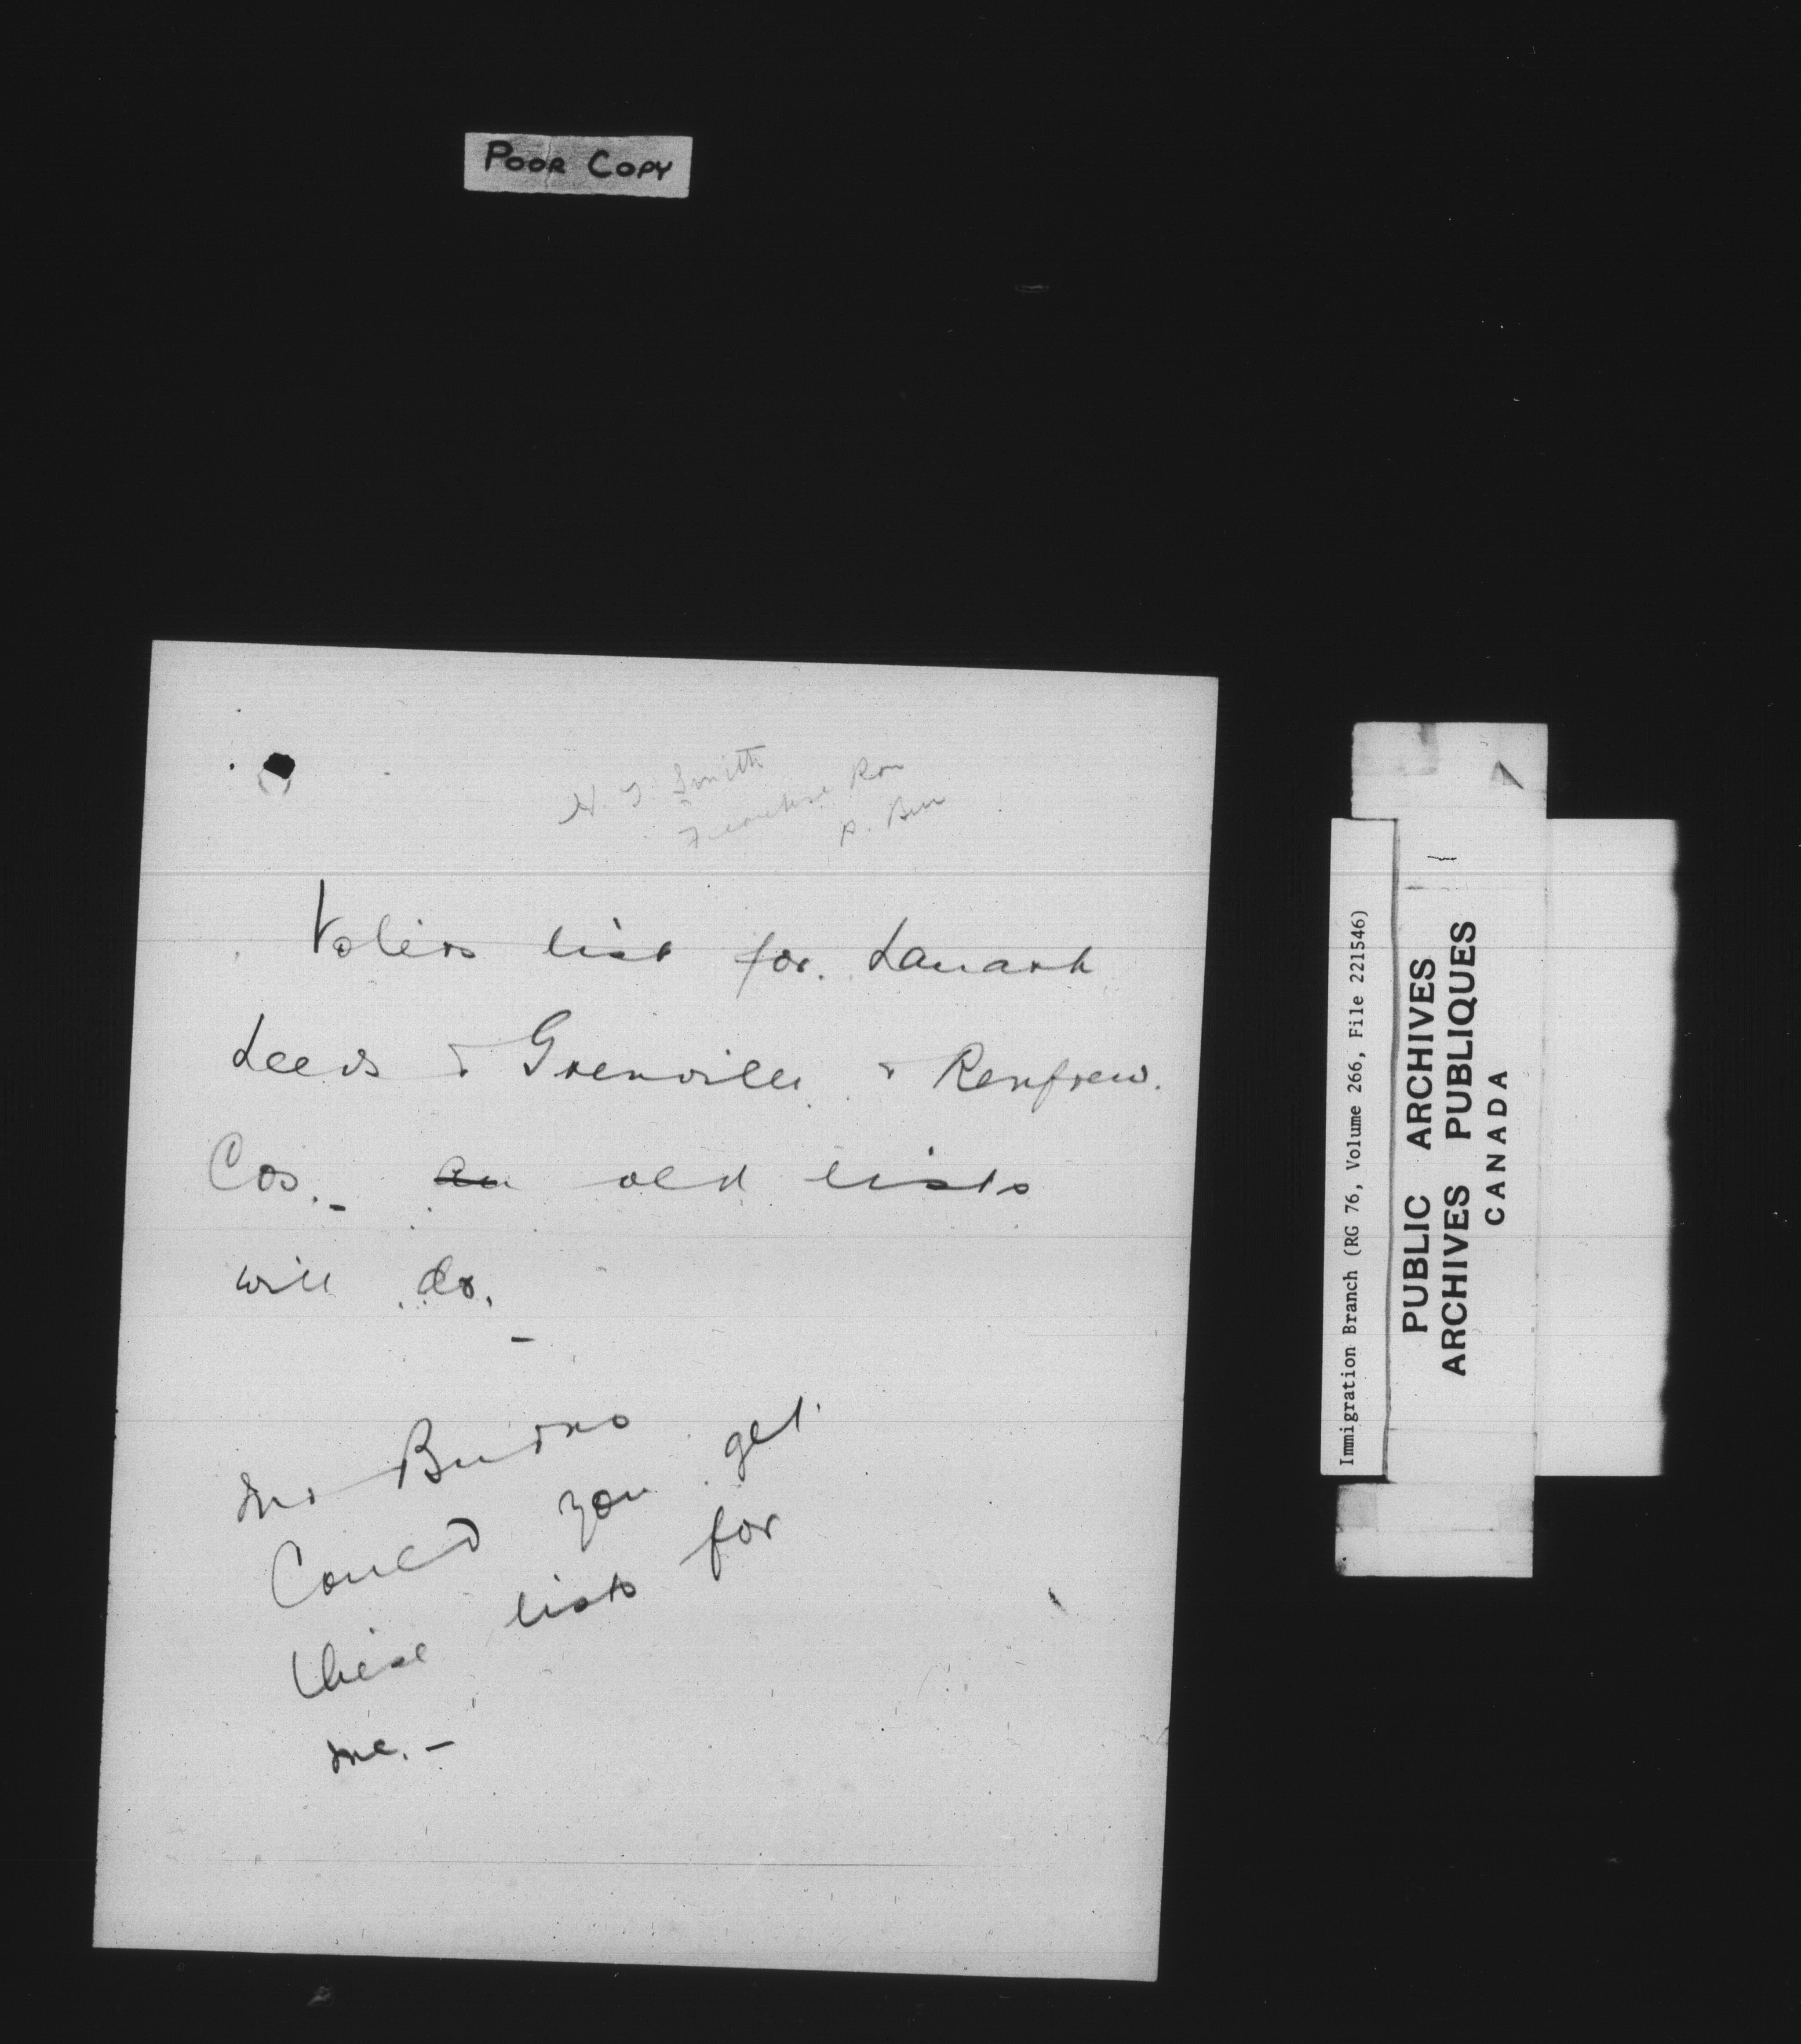 POOR COPY
H. J. Smith
Franchise
P.
Voters list for Lanark
Leeds & Grenville & Renfrew.
Cos. - an old lists
will do.
-
Mr Burns
Could you get
these lists for
me. -
Immigration Branch (RG 76, Volume 266, File 221546)
PUBLIC ARCHIVES
ARCHIVES PUBLIQUES
CANADA